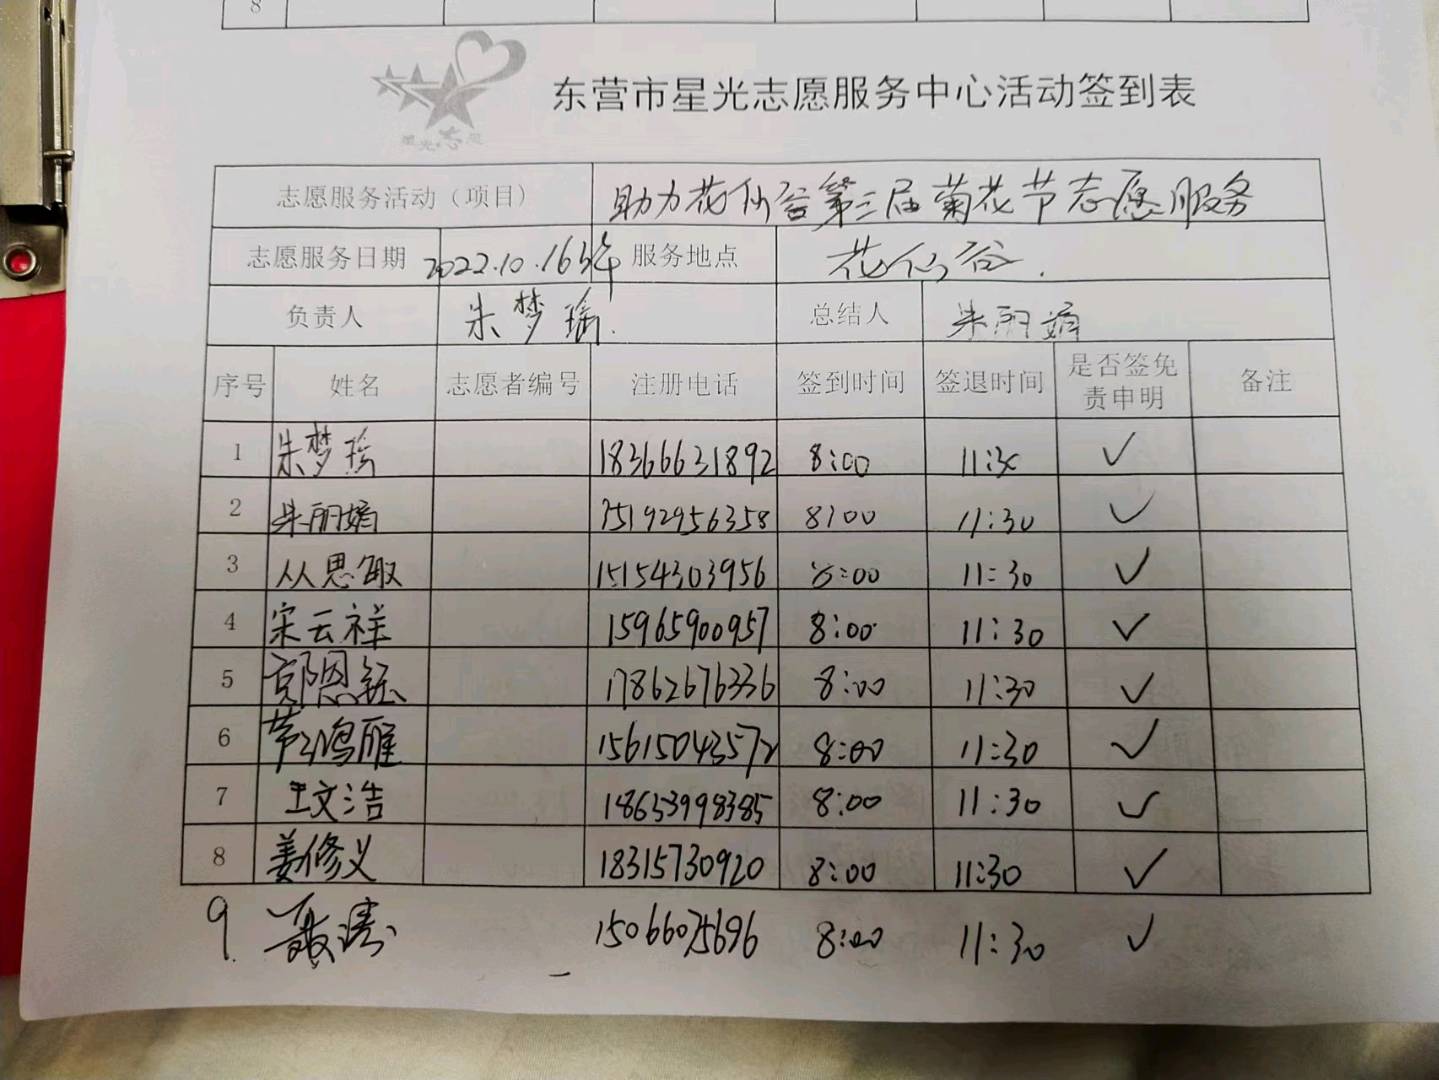 8
星光志愿
东营市星光志愿服务中心活动签到表
志愿服务活动（项目） 助力花仙谷第三届菊花节志愿服务
志愿服务日期 2022.10.16 服务地点 花仙谷.
负责人 朱梦瑜. 总结人 朱丽娟
序号 姓名 志愿者编号 注册电话 签到时间 签退时间 是否签免责申明 备注
1 朱梦瑜 18366631892 8:00 11:30 ✓
2 朱丽娟 15192956358 8:00 11:30 ✓
3 从思敏 15154303956 8:00 11:30 ✓
4 宋云祥 15965900957 8:00 11:30 ✓
5 17862676336 8:00 11:30 ✓
6 鸿雁 15615043572 8:00 11:30 ✓
7 王文浩 18653998385 8:00 11:30 ✓
8 姜修义 18315730920 8:00 11:30 ✓
9. 聂涛 15066075696 8:00 11:30 ✓